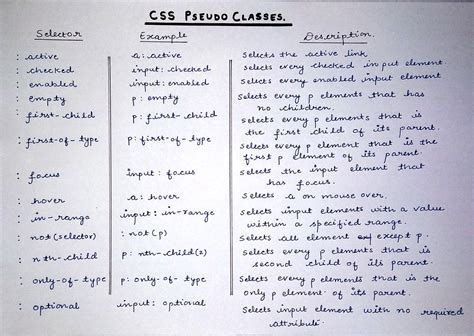 CSS PSEUDO CLASSES.
Selector Example Description.
: active a: active Selects the active link
: checked input: checked Selects every checked input element.
: enabled input: enabled Selects every enabled input element
: empty p: empty Selects every p elements that has
no children.
: first-child p: first-child Selects every p elements that is
the first child of its parent.
: first-of-type p: first-of-type Selects every p element that is the
first p element of its parent.
: focus input: focus Selects the input element that
has focus.
: hover a: hover Selects a on mouse over.
: in-range input: in-range Selects input elements with a value
within a specified range.
: not(selector) : not(p) Selects all element except p.
: nth-child p: nth-child(2) Selects every p elements that is
second child of its parent.
: only-of-type p: only-of-type Selects every p elements that is the
only p element of its parent.
: optional input: optional Selects input element with no required
attribute.